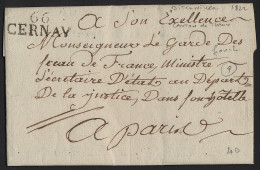 66
CERNAY
A Son Exellence
Monseigneur Le Garde Des
Sceau de France, Ministre
Secrétaire D'état au Départ
De la justice, Dans son hotelle
A paris